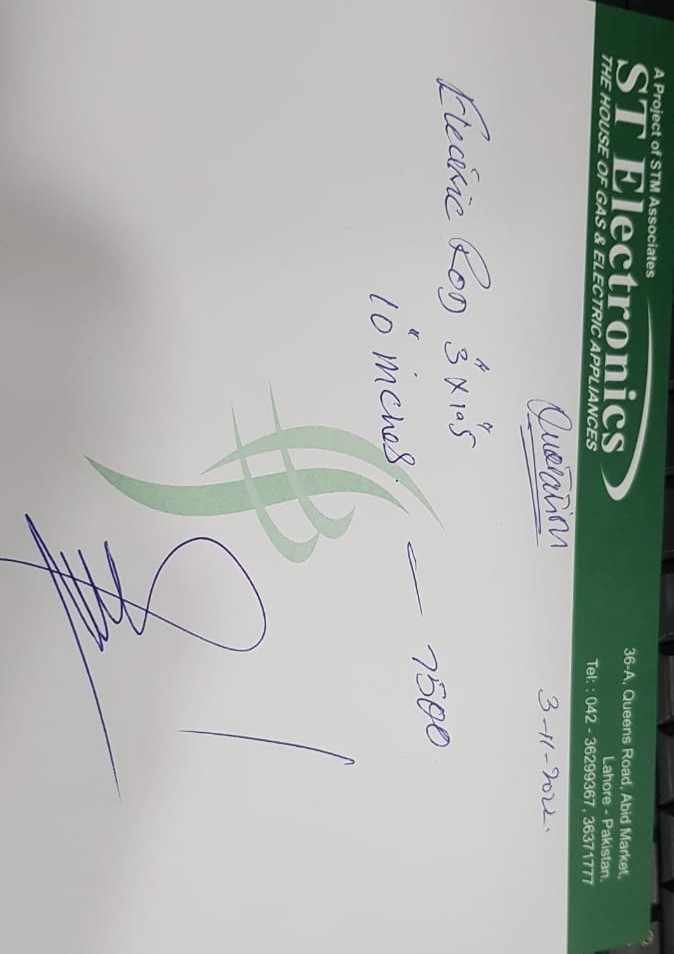 A Project of STM Associates
ST Electronics
THE HOUSE OF GAS & ELECTRIC APPLIANCES
36-A, Queens Road, Abid Market,
Lahore - Pakistan.
Tel: : 042 - 36299367, 36371777
Quotation
3-11-2022.
Electric Rod 3" x 10"5
10" inches. — 7500